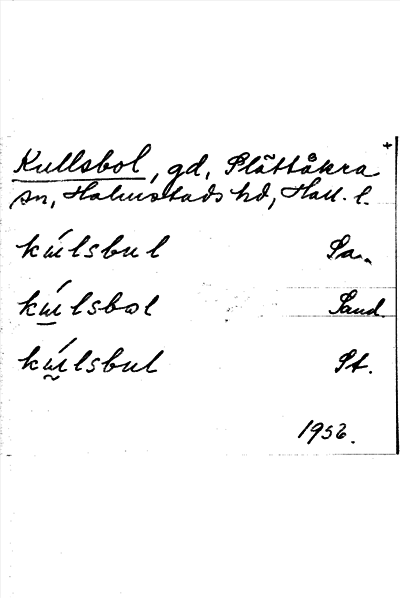 +
Kullsbol, gd, Slättåkra
sn, Halmstads hd, Hall. l.
kúlsbul Sa..
kúlsbol Sand.
kúlsbul St.
1952.